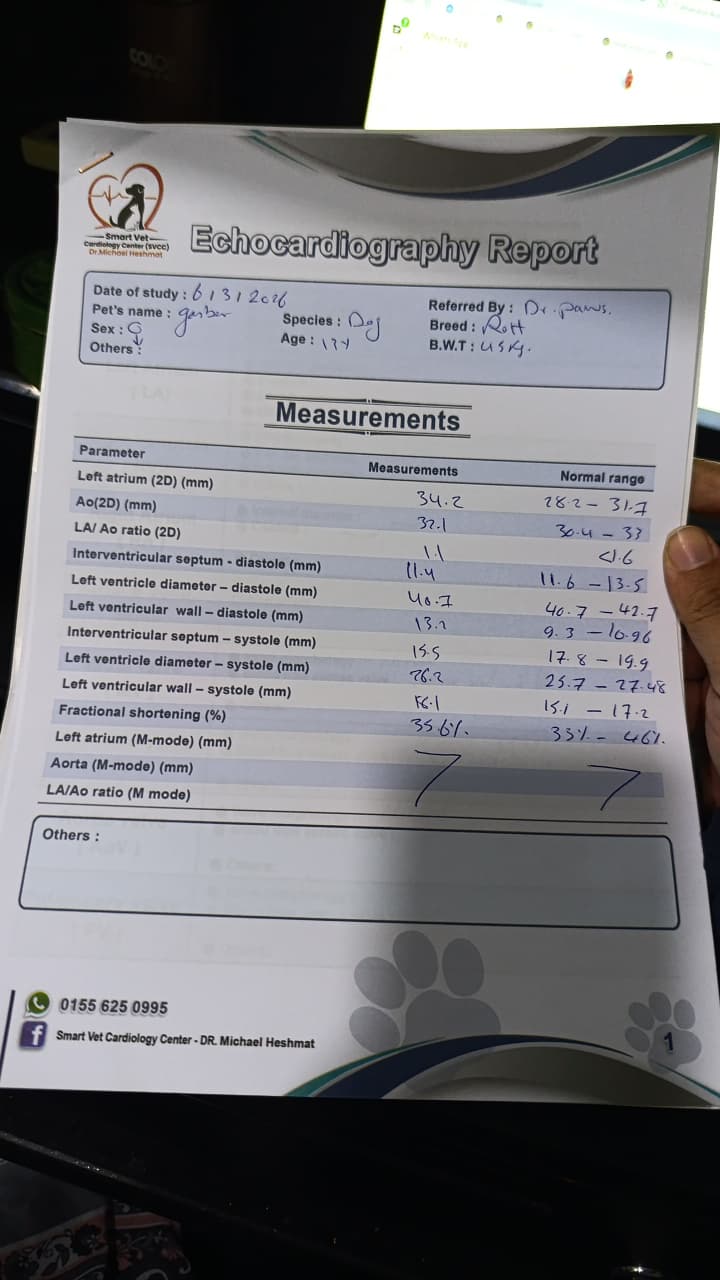 COLO
WhatsApp
Smart Vet
Cardiology Center (SVCC)
Dr.Michael Heshmat
Echocardiography Report
Date of study : 6/3/2026
Referred By : Dr. paws.
Pet's name :
Species : Dog
Breed : Rott
Sex : ♀
Age : 12y
B.W.T : 45kg.
Others :
Measurements
Parameter Measurements Normal range
Left atrium (2D) (mm) 34.2 28.2 – 31.7
Ao(2D) (mm) 32.1 30.4 – 33
LA/ Ao ratio (2D) 1.1 <1.6
Interventricular septum - diastole (mm) 11.4 11.6 – 13.5
Left ventricle diameter – diastole (mm) 40.7 40.7 – 42.7
Left ventricular wall – diastole (mm) 13.2 9.3 – 10.96
Interventricular septum – systole (mm) 15.5 17.8 – 19.9
Left ventricle diameter – systole (mm) 26.2 25.7 – 27.48
Left ventricular wall – systole (mm) 15.1 – 17.2
Fractional shortening (%) 35.6% 33% – 46%.
Left atrium (M-mode) (mm)
Aorta (M-mode) (mm)
LA/Ao ratio (M mode)
Others :
0155 625 0995
Smart Vet Cardiology Center - DR. Michael Heshmat
1